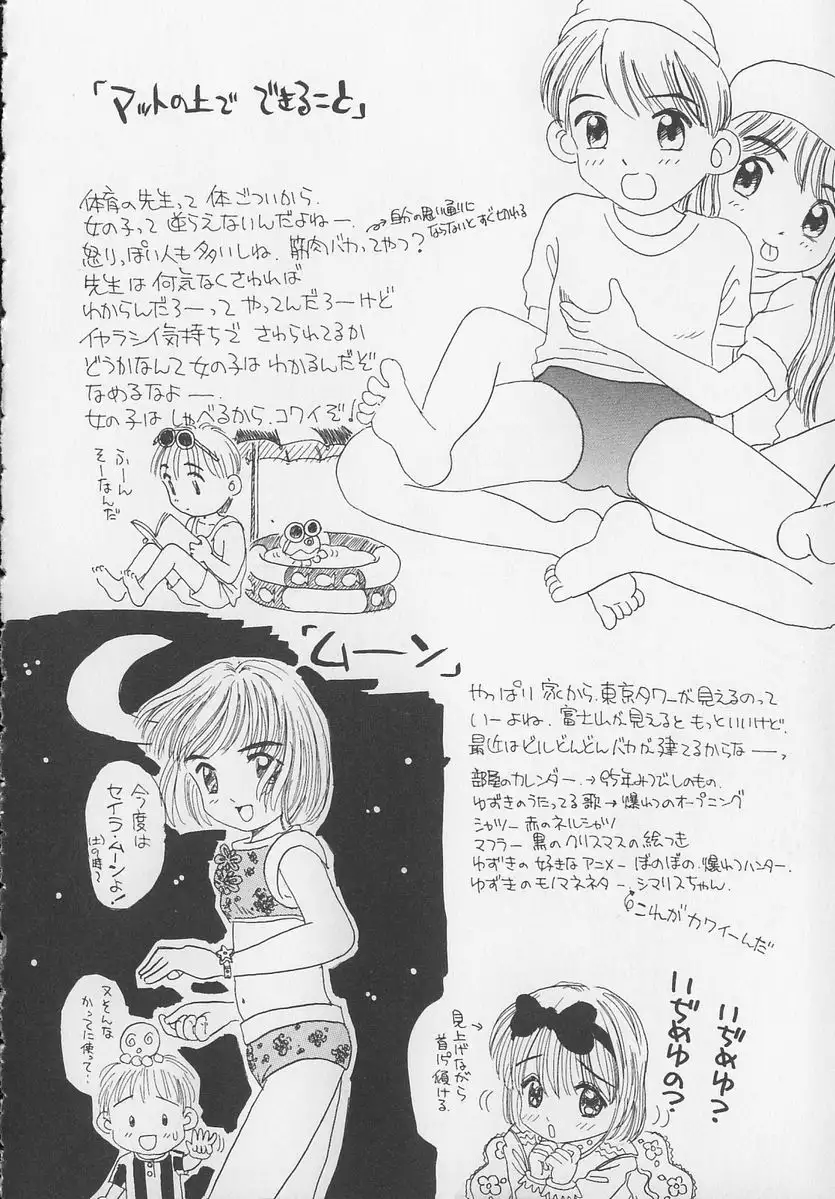 「マットの上で できること」
体育の先生って 体ごついから、
女の子って 逆らえないんだよねー、
→自分の思い通りに
ならないとすぐ切れる
怒りっぽい人も多いしね、筋肉バカってやつ?
先生は 何気なくさわれば
わからんだろーって やってんだろーけど
イヤラシイ気持ちで さわられてるか
どうかなんて 女の子は わかるんだぞ
なめるなよー、
女の子は しゃべるから、コワイぞ!
ふーん
そーなんだ
「ムーン」
やっぱり 家から、東京タワーが見えるのって
いーよね、富士山が見えると もっといいけど、
最近はビルどんどんバカが建てるからなー、
部屋のカレンダー →95年みつでしのもの、
ゆずきのうたってる歌→爆れつのオープニング
シャツー 赤のネルシャツ
マフラー 黒のクリスマスの絵つき
ゆずきの 好きなアニメー ぼのぼの、爆れつハンター、
ゆずきのモノマネネター、シマリスちゃん、
これが カワイーんだ
今度は
セイラ・ムーンよ!
(土)9時〜
又そんな
かってに使って…
見上げながら
首は傾ける
いぢめゆ?
いぢめゆの?